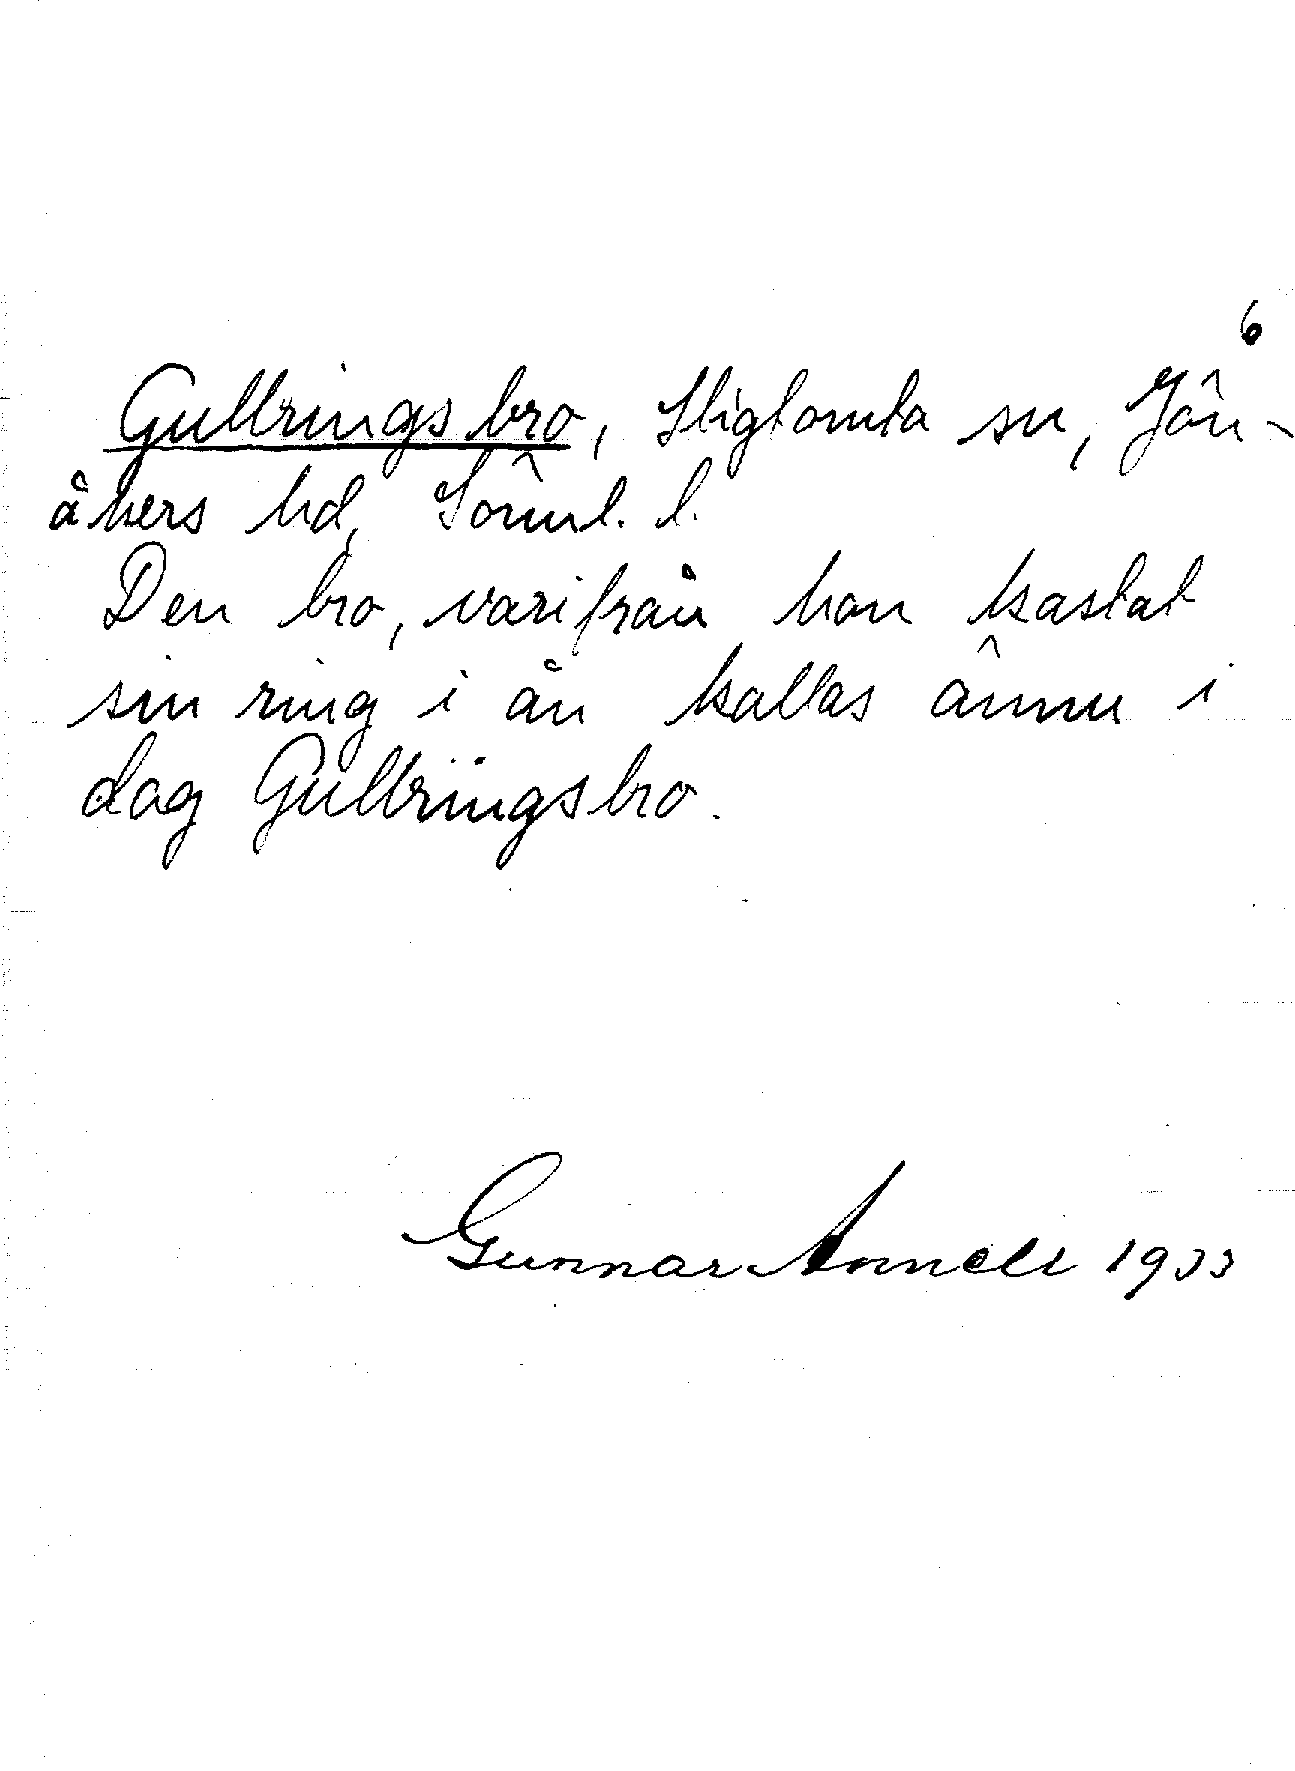 6
Gullringsbro, Stigtomta sn, Jön-
åkers hd, Söml. l.
Den bro, varifrån han kastat
sin ring i ån kallas ännu i
dag Gullringsbro.
Gunnar Annell 1933